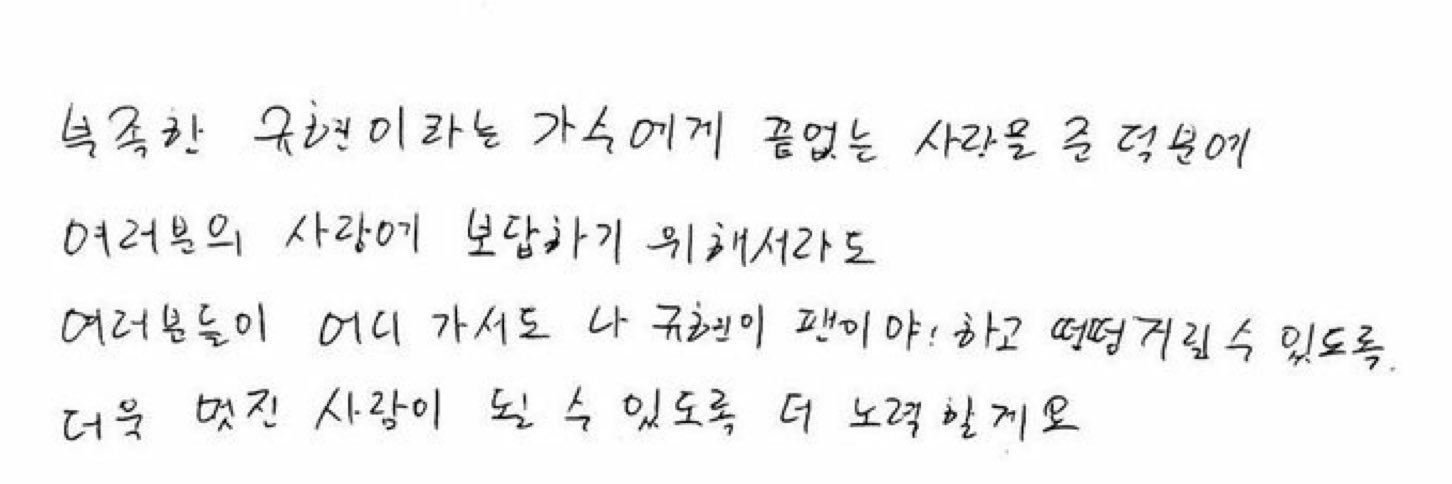 부족한 규현이라는 가수에게 끝없는 사랑을 준 덕분에
여러분의 사랑에 보답하기 위해서라도
여러분들이 어디 가서도 나 규현이 팬이야! 하고 떵떵거릴 수 있도록.
더욱 멋진 사람이 될 수 있도록 더 노력할게요